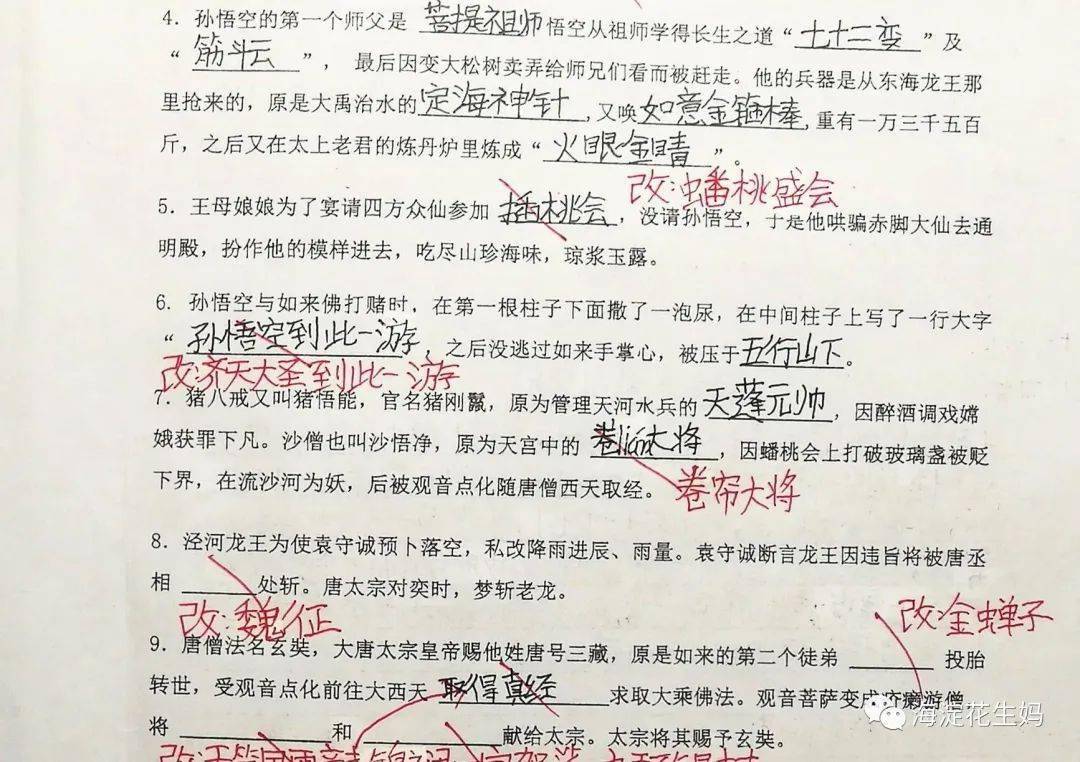 4. 孙悟空的第一个师父是 菩提祖师 悟空从祖师学得长生之道“ 七十二变 ”及
“ 筋斗云 ”， 最后因变大松树卖弄给师兄们看而被赶走。他的兵器是从东海龙王那
里抢来的，原是大禹治水的定海神针,又唤如意金箍棒,重有一万三千五百
斤，之后又在太上老君的炼丹炉里炼成“ 火眼金睛 ”。
改:蟠桃盛会
5. 王母娘娘为了宴请四方众仙参加 插桃会 ，没请孙悟空，于是他哄骗赤脚大仙去通
明殿，扮作他的模样进去，吃尽山珍海味，琼浆玉露。
6. 孙悟空与如来佛打赌时，在第一根柱子下面撒了一泡尿，在中间柱子上写了一行大字
“ 孙悟空到此一游 ，之后没逃过如来手掌心，被压于五行山下。
改:齐天大圣到此一游
7. 猪八戒又叫猪悟能，官名猪刚鬣，原为管理天河水兵的 天蓬元帅 ，因醉酒调戏嫦
娥获罪下凡。沙僧也叫沙悟净，原为天宫中的 卷lián大将 ，因蟠桃会上打破玻璃盏被贬
下界，在流沙河为妖，后被观音点化随唐僧西天取经。 卷帘大将
8. 泾河龙王为使袁守诚预卜落空，私改降雨进辰、雨量。袁守诚断言龙王因违旨将被唐丞
相 ______处斩。唐太宗对奕时，梦斩老龙。
改:魏征
改:金蝉子
9. 唐僧法名玄奘，大唐太宗皇帝赐他姓唐号三藏，原是如来的第二个徒弟 ______ 投胎
转世，受观音点化前往大西天 取得真经 求取大乘佛法。观音菩萨变成疥癞游僧，
将 ______ 和 ______ 献给太宗。太宗将其赐予玄奘。
海淀花生妈